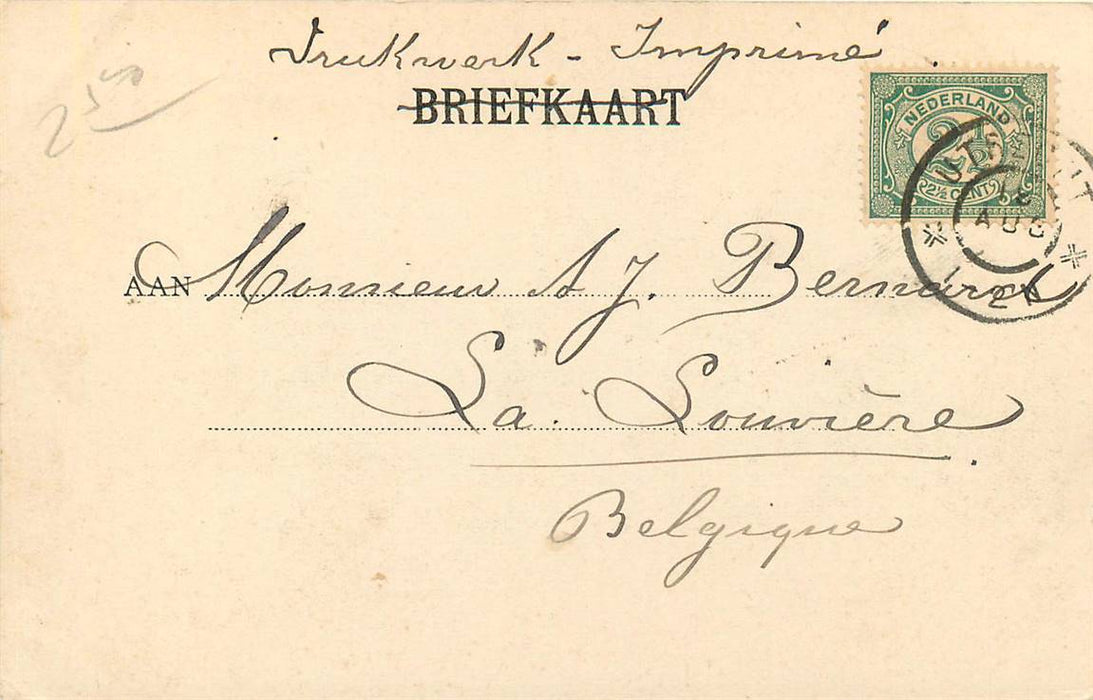 2,50
Drukwerk - Imprimé
BRIEFKAART
NEDERLAND
2½
2½ CENT
UTRECHT
AUG
AAN Monsieur A J. Bernard
La Louvière
Belgique